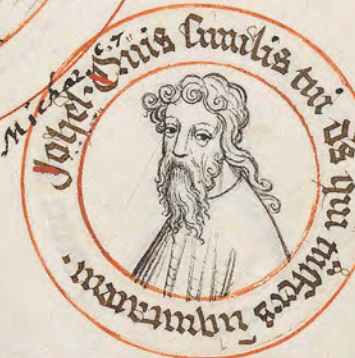 Micheas
Johel. Quis similis tui ds qui aufers iniquitatem.